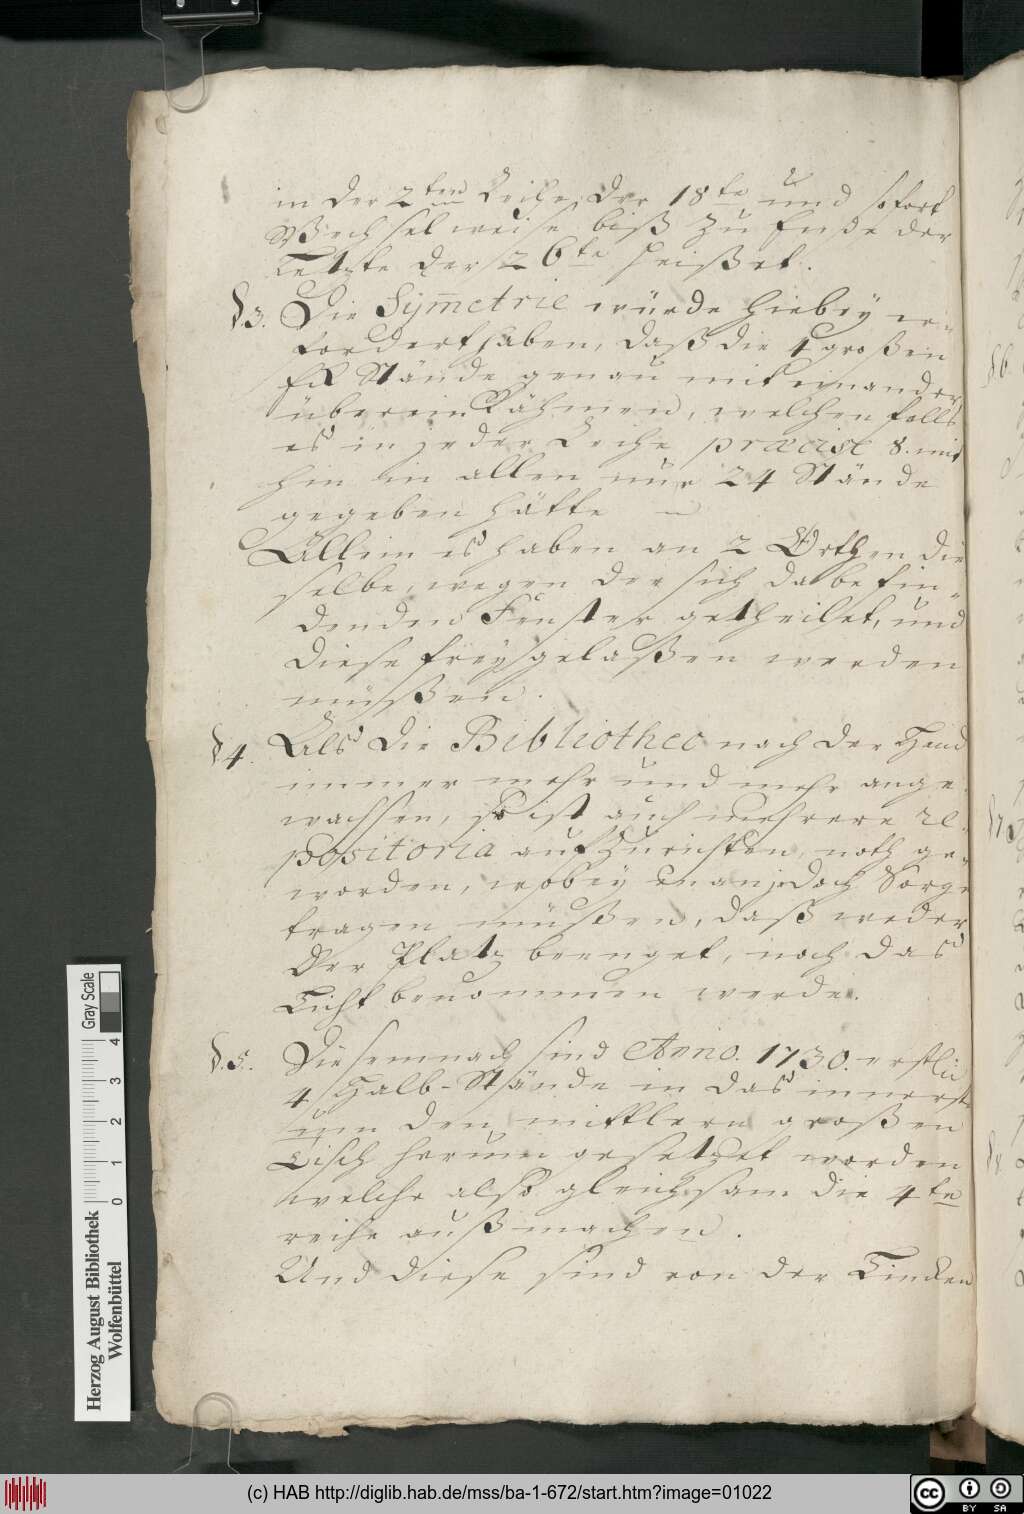 in der 2ten Reihe, der 18te und sofort
Wechselweise biß zu Ende der
Letzte der 26te heißet.
§ 3. Die Sym̄etrie würde hiebey er-
fordert haben, daß die 4 großen
Stände genau mit einander
übereinkähmen, welchenfalls
es in jeder Reihe præcise 8. mit
hin in allen nur 24 Stände
gegeben hätte
Allein es haben an 2 Orthen die
selbe, wegen der sich da befin-
denden Fenster getheilet, und
diese freygelaßen werden
müßen.
§ 4. Als die Bibliothec nach der Hand
immer mehr und mehr ange-
wachsen, so ist auch mehrere re-
positoria aufzurichten, noth ge-
worden, wobey man jedoch Sorge
tragen müßen, daß weder
der Platz beenget, noch das
Licht benommen werde.
§. 5. Diesemnach sind Anno. 1730. erstlich
4 Halb-Stände in das innerste
um den mittlern großen
Tisch herum gesetzet worden
welche also gleichsam die 4te
reihe außmachen.
Und diese sind von der Lincken
§ 6.
§ 7.
§ 8.
Gray Scale
0 1 2 3 4
Herzog August Bibliothek
Wolfenbüttel
(c) HAB http://diglib.hab.de/mss/ba-1-672/start.htm?image=01022
cc BY SA